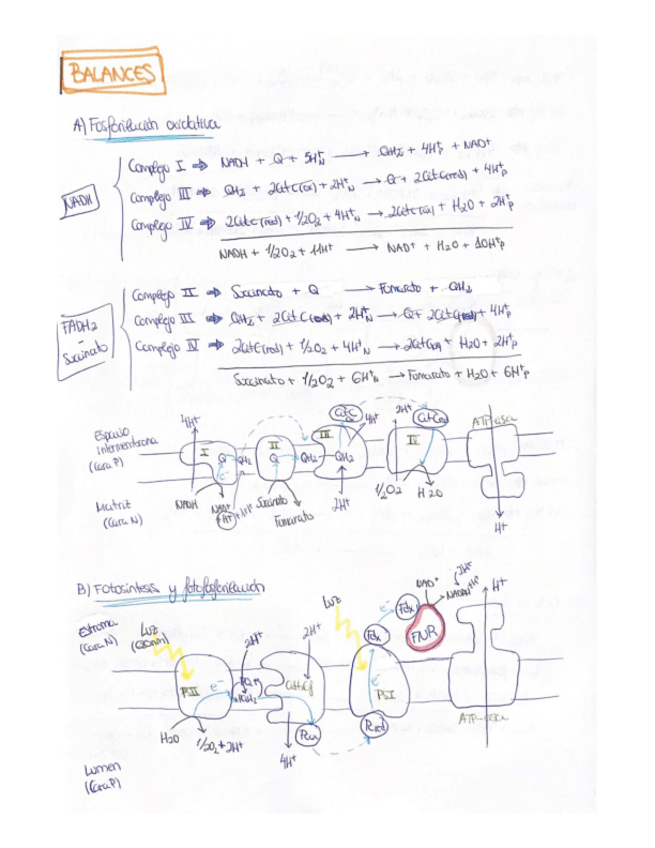 BALANCES
A) Fosforilación oxidativa
NADH
Complejo I ⇒ NADH + Q + 5H⁺N → QH2 + 4H⁺P + NAD⁺
Complejo III ⇒ QH2 + 2Cit C(ox) + 2H⁺N → Q + 2Cit C(red) + 4H⁺P
Complejo IV ⇒ 2Cit C(red) + 1/2O2 + 4H⁺N → 2Cit C(ox) + H2O + 2H⁺P
NADH + 1/2O2 + 11H⁺ → NAD⁺ + H2O + 10H⁺P
FADH2
-
Succinato
Complejo II ⇒ Succinato + Q → Fumarato + QH2
Complejo III ⇒ QH2 + 2Cit C + 2H⁺N → Q + 2Cit C(red) + 4H⁺P
Complejo IV ⇒ 2Cit C(red) + 1/2O2 + 4H⁺N → 2Cit C(ox) + H2O + 2H⁺P
Succinato + 1/2O2 + 6H⁺N → Fumarato + H2O + 6H⁺P
Espacio
intermembrana
(Cara P)
4H⁺
I
Q
QH2
e⁻
II
Q
QH2
III
QH2
Cit C
4H⁺
2H⁺
IV
ATP-asa
Matriz
(Cara N)
NADH
NAD⁺
+H⁺
Succinato
Fumarato
2H⁺
1/2O2
H2O
H⁺
B) Fotosíntesis y fotofosforilación
Estroma
(Cara N)
Luz
(680nm)
PSII
e⁻
2H⁺
PQ
PQH2
2H⁺
Cit b6f
Luz
PSI
e⁻
Fdx
e⁻
Fdx
FNR
NAD⁺
NADPH
H⁺
ATP-asa
H2O
1/2O2 + 2H⁺
4H⁺
Lumen
(Cara P)